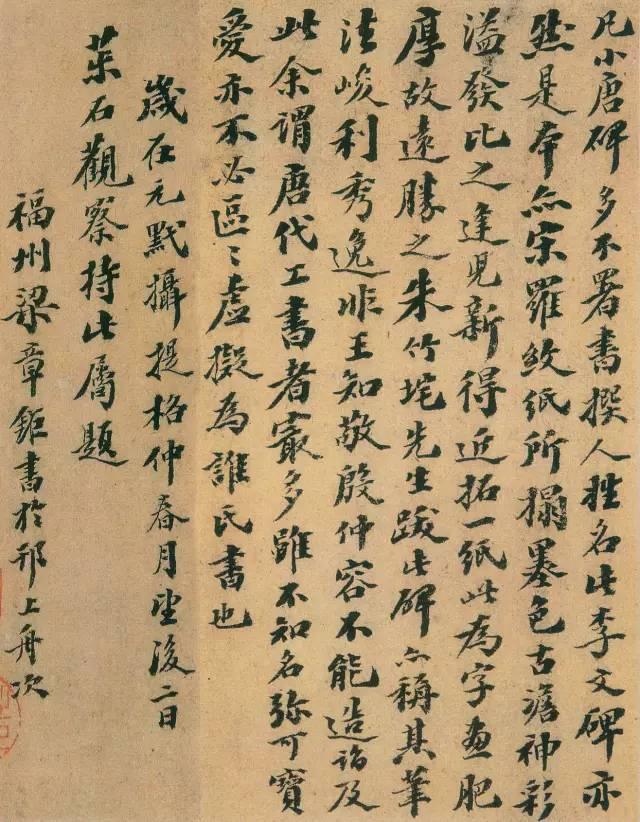 凡小唐碑多不署書撰人姓名此李文碑亦
然是本亦宋羅紋紙所搨墨色古澹神彩
溢發比之逢兒新得近拓一紙此為字畫肥
厚故遠勝之朱竹垞先生跋此碑亦稱其筆
法峻利秀逸非王知敬殷仲容不能造詣及
此余謂唐代工書者寂多雖不知名弥可寶
愛亦不必區〻虛擬為誰氏書也
歲在元黓攝提格仲春月望後二日
茮石觀察持此屬題
福州梁章鉅書於邗上舟次